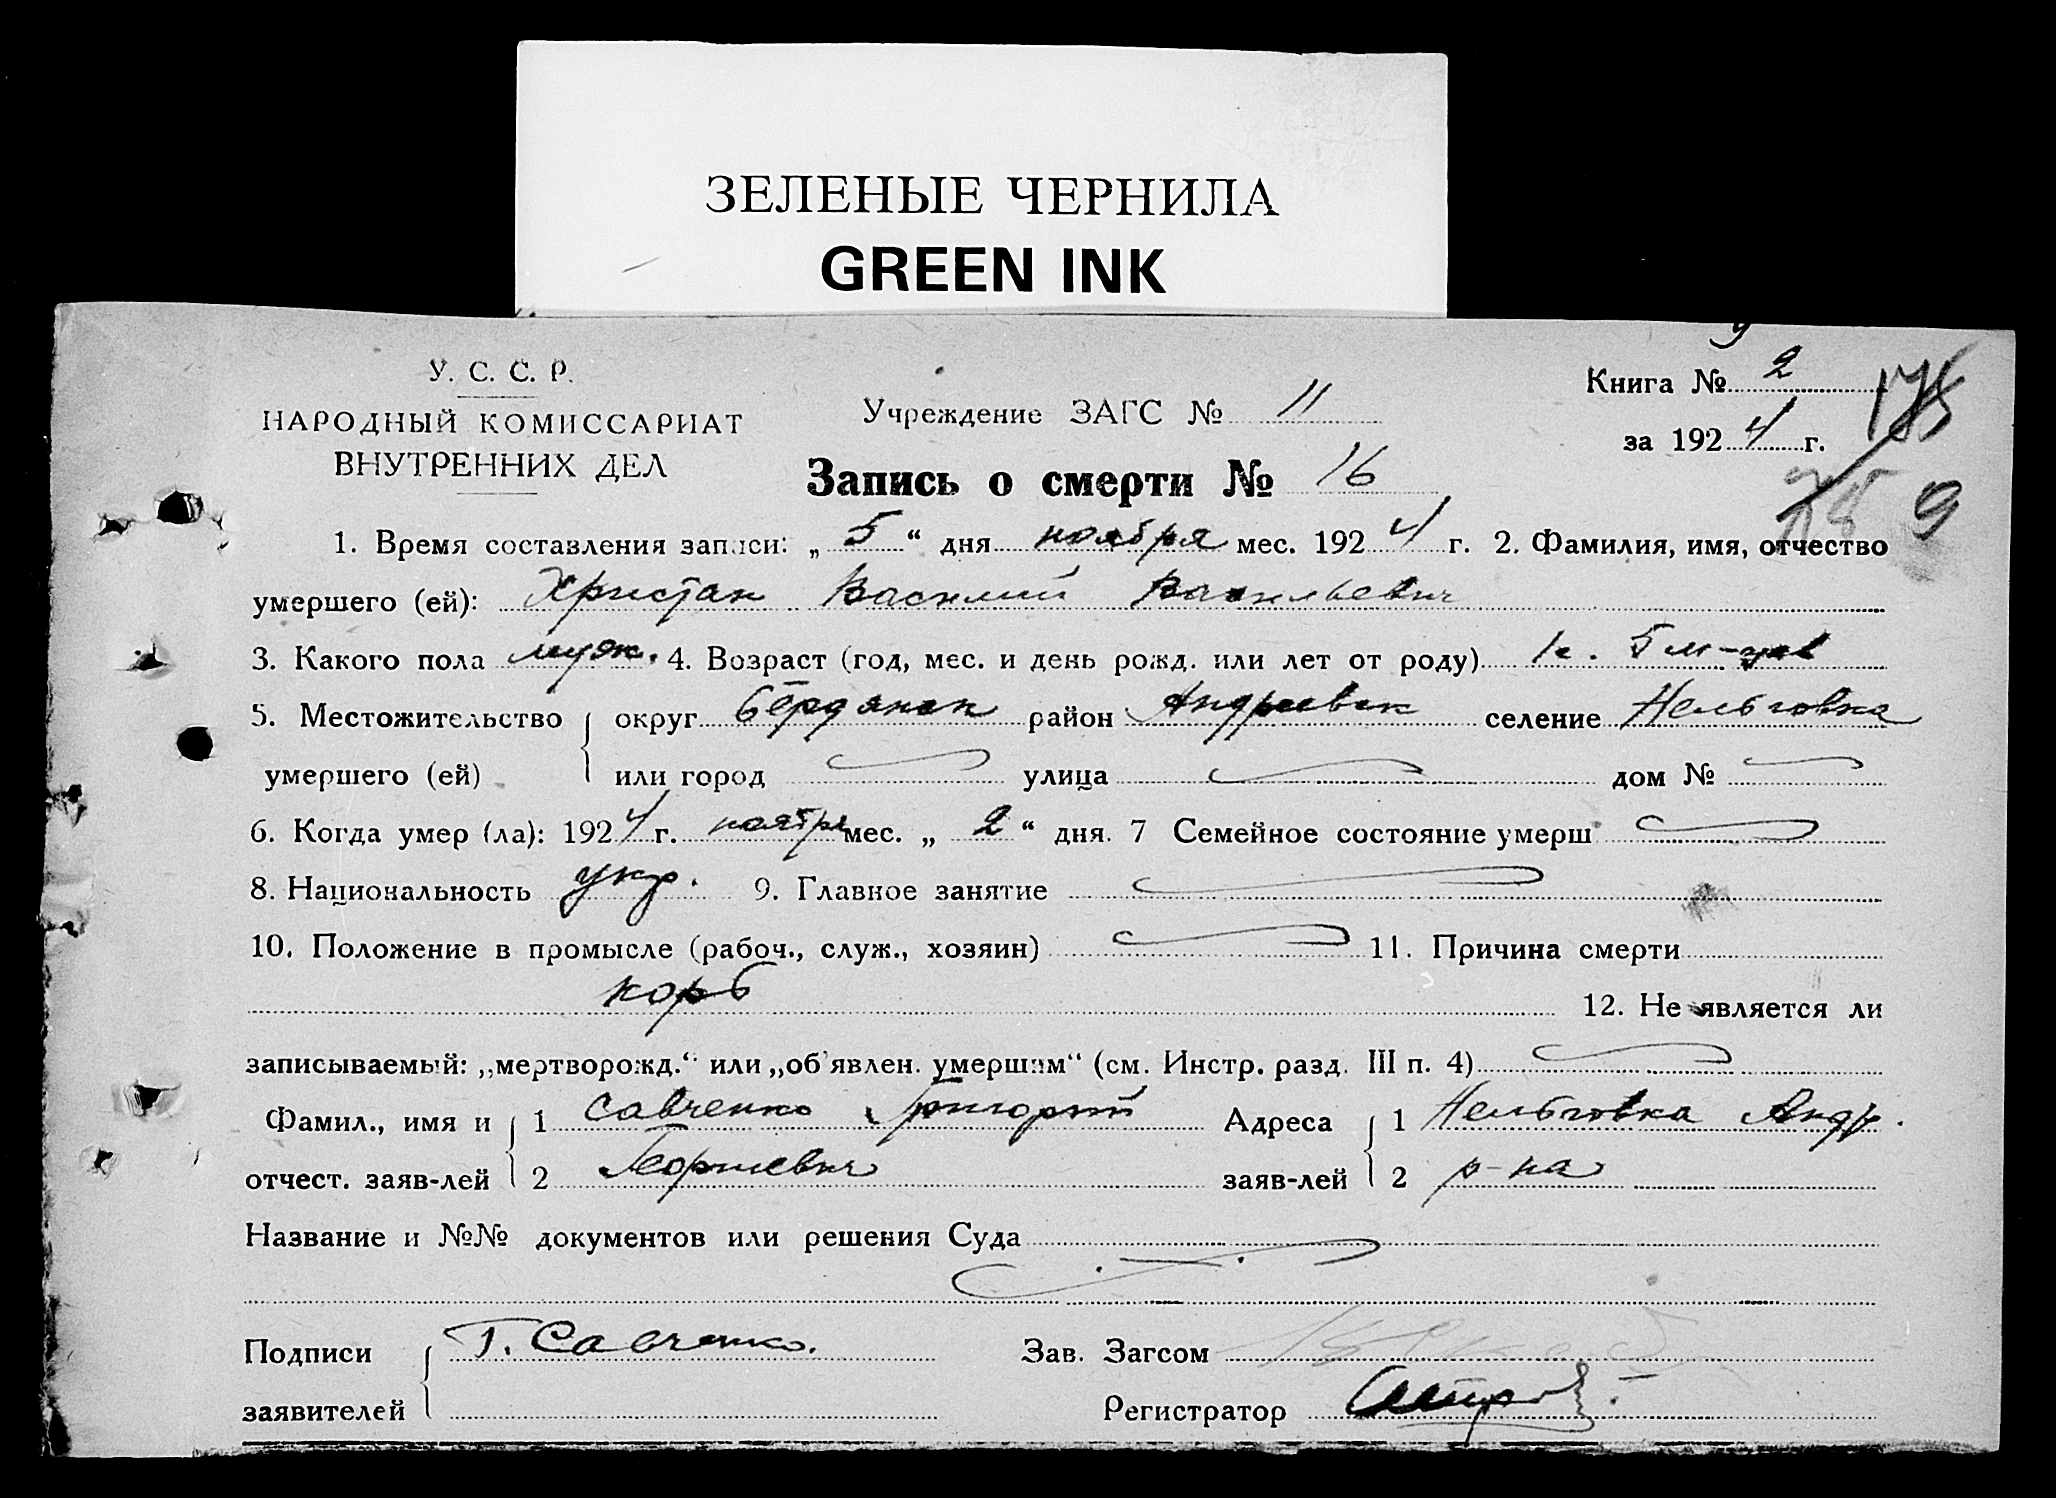 ЗЕЛЕНЫЕ ЧЕРНИЛА
GREEN INK
У. С. С. Р.
НАРОДНЫЙ КОМИССАРИАТ
ВНУТРЕННИХ ДЕЛ
Учреждение ЗАГС № 11
Книга № 2
за 1924 г.
175
9
Запись о смерти № 16
1. Время составления записи: „ 5 “ дня ноября мес. 1924 г. 2. Фамилия, имя, отчество
умершего (ей): Христан Василий Васильевич
3. Какого пола муж. 4. Возраст (год, мес. и день рожд. или лет от роду) 1г. 5 м-цев
5. Местожительство округ Бердянск район Андреевск селение Нельговка
умершего (ей) или город улица дом №
6. Когда умер (ла): 1924 г. ноября мес. „ 2 “ дня. 7 Семейное состояние умерш
8. Национальность укр. 9. Главное занятие
10. Положение в промысле (рабоч., служ., хозяин) 11. Причина смерти
корь 12. Не является ли
записываемый: „мертворожд.“ или „об'явлен. умершим“ (см. Инстр. разд. III п. 4)
Фамил., имя и 1 Савченко Григорий Адреса 1 Нельговка Андр.
отчест. заяв-лей 2 Георгиевич заяв-лей 2 р-на
Название и №№ документов или решения Суда
Подписи Г. Савченко. Зав. Загсом
заявителей Регистратор